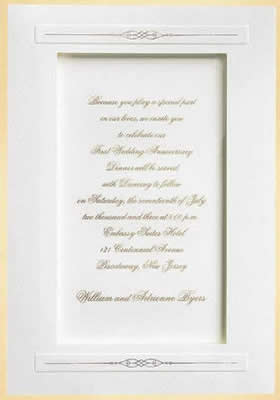 Because you play a special part
in our lives, we invite you
to celebrate our
First Wedding Anniversary
Dinner will be served
with Dancing to follow
on Saturday, the seventeenth of July
two thousand and three at 8:00 p.m.
Embassy Suites Hotel
121 Centennial Avenue
Piscataway, New Jersey
William and Adrienne Byers